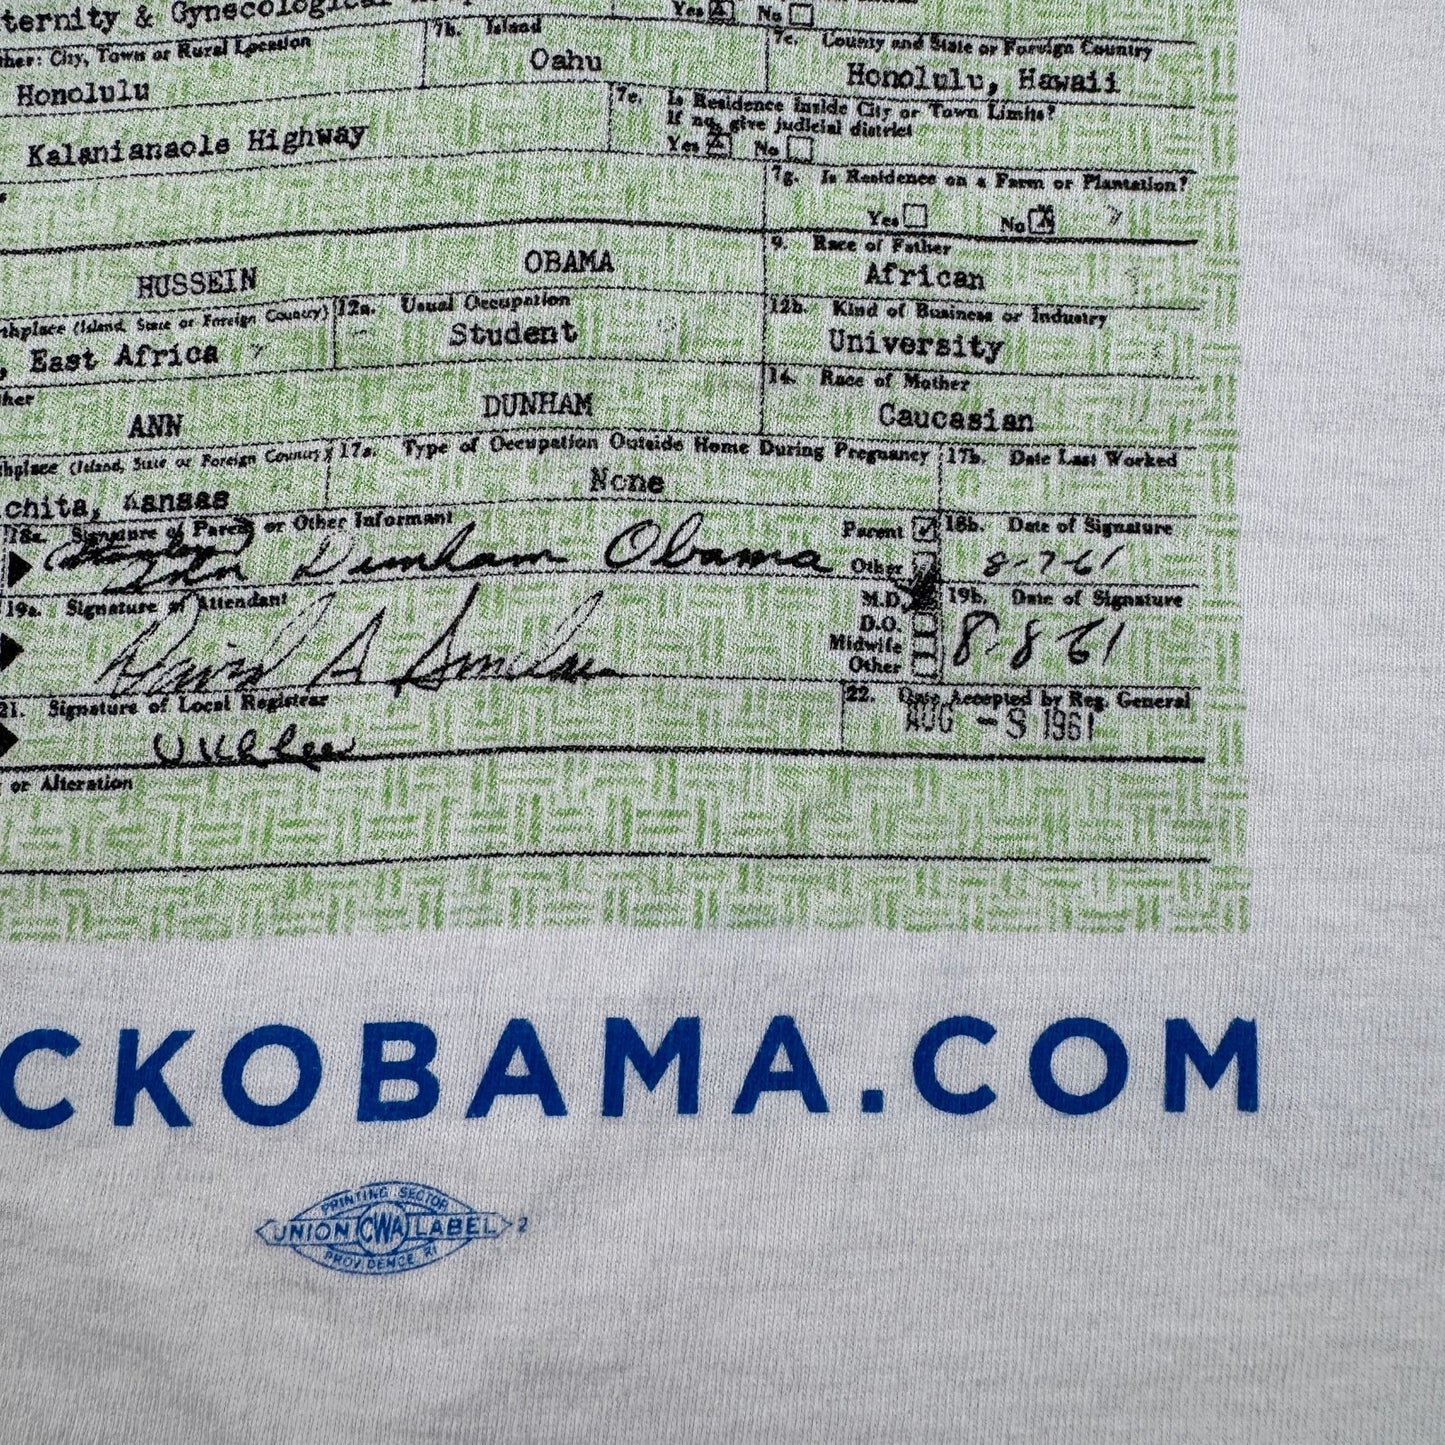 ternity & Gynecological
Yes No
ther: City, Town or Rural Location
7b. Island
7c. County and State or Foreign Country
Honolulu
Oahu
Honolulu, Hawaii
7e. Is Residence Inside City or Town Limits?
If no, give judicial district
Kalanianaole Highway
Yes No
7g. Is Residence on a Farm or Plantation?
Yes No
9. Race of Father
HUSSEIN OBAMA African
thplace (Island, State or Foreign Country)
12a. Usual Occupation
12b. Kind of Business or Industry
, East Africa Student University
her
14. Race of Mother
ANN DUNHAM Caucasian
hplace (Island, State or Foreign Country)
17a. Type of Occupation Outside Home During Pregnancy
17b. Date Last Worked
chita, Kansas None
18a. Signature of Parent or Other Informant
Parent
18b. Date of Signature
Ann Dunham Obama
Other
8-7-61
19a. Signature of Attendant
M.D.
19b. Date of Signature
David A Sinclair
D.O.
Midwife
Other
8-8-61
21. Signature of Local Registrar
22. Date Accepted by Reg. General
U K L Lee
AUG -8 1961
or Alteration
CKOBAMA.COM
PRINTING SECTOR
UNION CWA LABEL 2
PROVIDENCE, RI